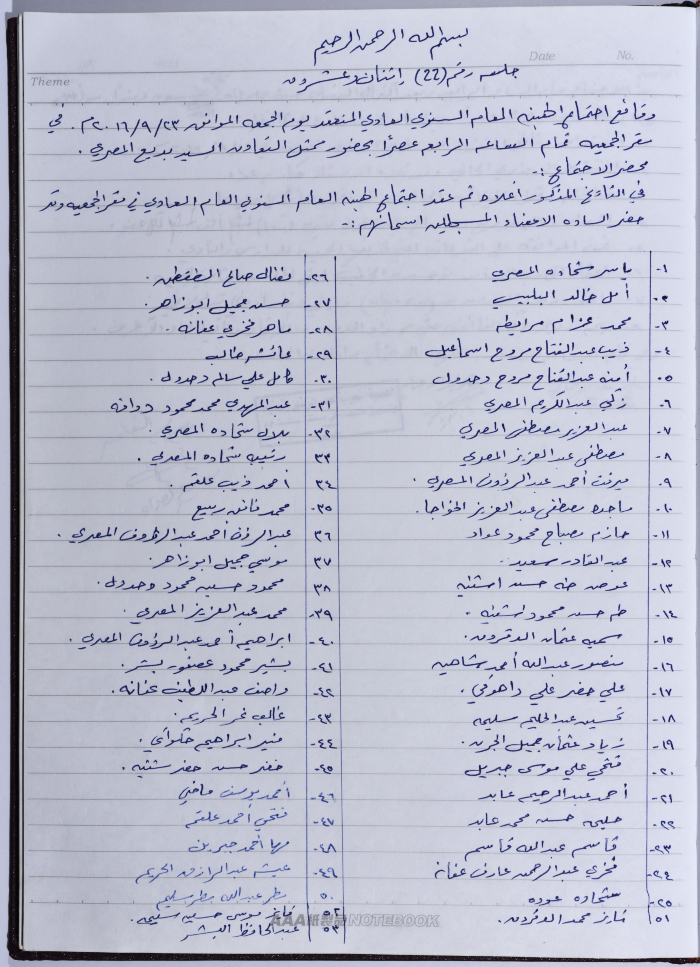 Date No.
Theme
بسم الله الرحمن الرحيم
جلسه رقم (22) إثنان وعشرون
وقائع اجتماع الهيئه العامه السنوي العادي المنعقد يوم الجمعه الموافق ٢٣/٩/٢٠١٦م. في
مقر الجمعيه تمام الساعه الرابعه عصراً بحضور ممثل التعاون السيد بديع المصري.
محضر الاجتماع:-
في التاريخ المذكور أعلاه تم عقد اجتماع الهيئه العامه السنوي العام العادي في مقر الجمعيه وقد
حضر الساده الاعضاء المسجلين اسمائهم:-
١- ياسر شحاده المصري
٢- أمل خالد البلبيسي
٣- محمد عزام مرايطه
٤- ذيب عبد الفتاح مروح اسماعيل
٥- أمنه عبد الفتاح مروح وحدول
٦- زكي عبد الكريم المصري
٧- عبد العزيز مصطفى المصري
٨- مصطفى عبد العزيز المصري
٩- ميرفت أحمد عبد الرؤوف المصري.
١٠- ماجده مصطفى عبد العزيز الخواجا.
١١- حازم مصباح محمود عواد
١٢- عبد القادر سعيد.
١٣- عوض طه حسن اشتيه
١٤- طه حسن محمود اشتيه.
١٥- عثمان
١٦- منصور عبد الله أحمد شاهين
١٧- علي خضر علي داهوقي.
١٨- تحسين عبد الحليم سليمه
١٩- زياد عثمان جميل
٢٠- فتحي علي موسى جبريل
٢١- أحمد عبد الرحيم عابد
٢٢- حليمه حسن محمد عابد
٢٣- قاسم عبد الله قاسم
٢٤- فخري عبد الرحمن عارف عفانه
٢٥- شحاده عوده
٥١- فارز محمد
٢٦- نضال صالح القطقطن.
٢٧- حسن جميل ابو زاهر.
٢٨- ماهر فخري عفانه.
٢٩- عائشه طالب
٣٠- كامل علي سالم وحدول.
٣١- عبد المهدي محمد محمود
٣٢- بلال شحاده المصري.
٣٣ شحاده المصري.
٣٤ أحمد ذيب علقم.
٣٥- محمد فائق ربيع
٣٦ عبد الرؤوف أحمد عبد الرؤوف المصري.
٣٧ موسى جميل ابو زاهر.
٣٨ محمود حسين محمود وحدول.
٣٩- محمد عبد العزيز المصري.
٤٠- ابراهيم أحمد عبد الرؤوف المصري.
٤١- بشير محمود عصفور بشر.
٤٢- واصف عبد اللطيف عنانه.
٤٣- غالب نمر الحريم.
٤٤- منير ابراهيم حلواني.
٤٥- خضر حسن خضر شتيه.
٤٦- أحمد يوسف ماضي
٤٧- فتحي أحمد علقم
٤٨- مها أحمد جبرين
٤٩- عيشه عبد الرازق الحريم
٥٠- مطر عبد الله مطر سليم
٥٢- موسى حسين سليمه.
٥٣ عبد الحافظ البشر
NOTEBOOK